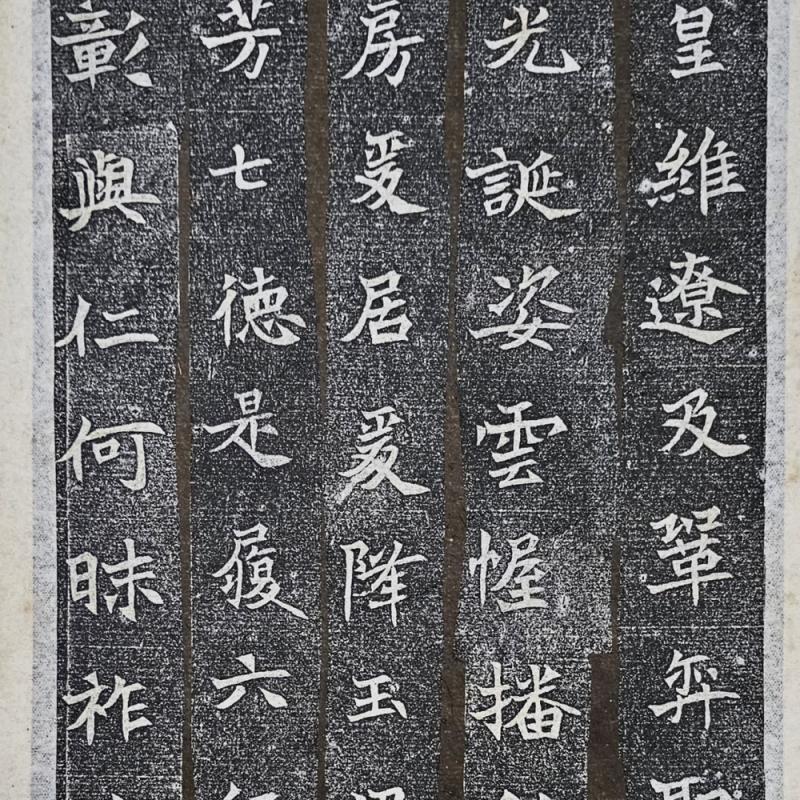 皇維遼及鞏弈
光誕姿雲幄播
房爰居爰降玉
芳七德是履六
彰與仁何昧祚